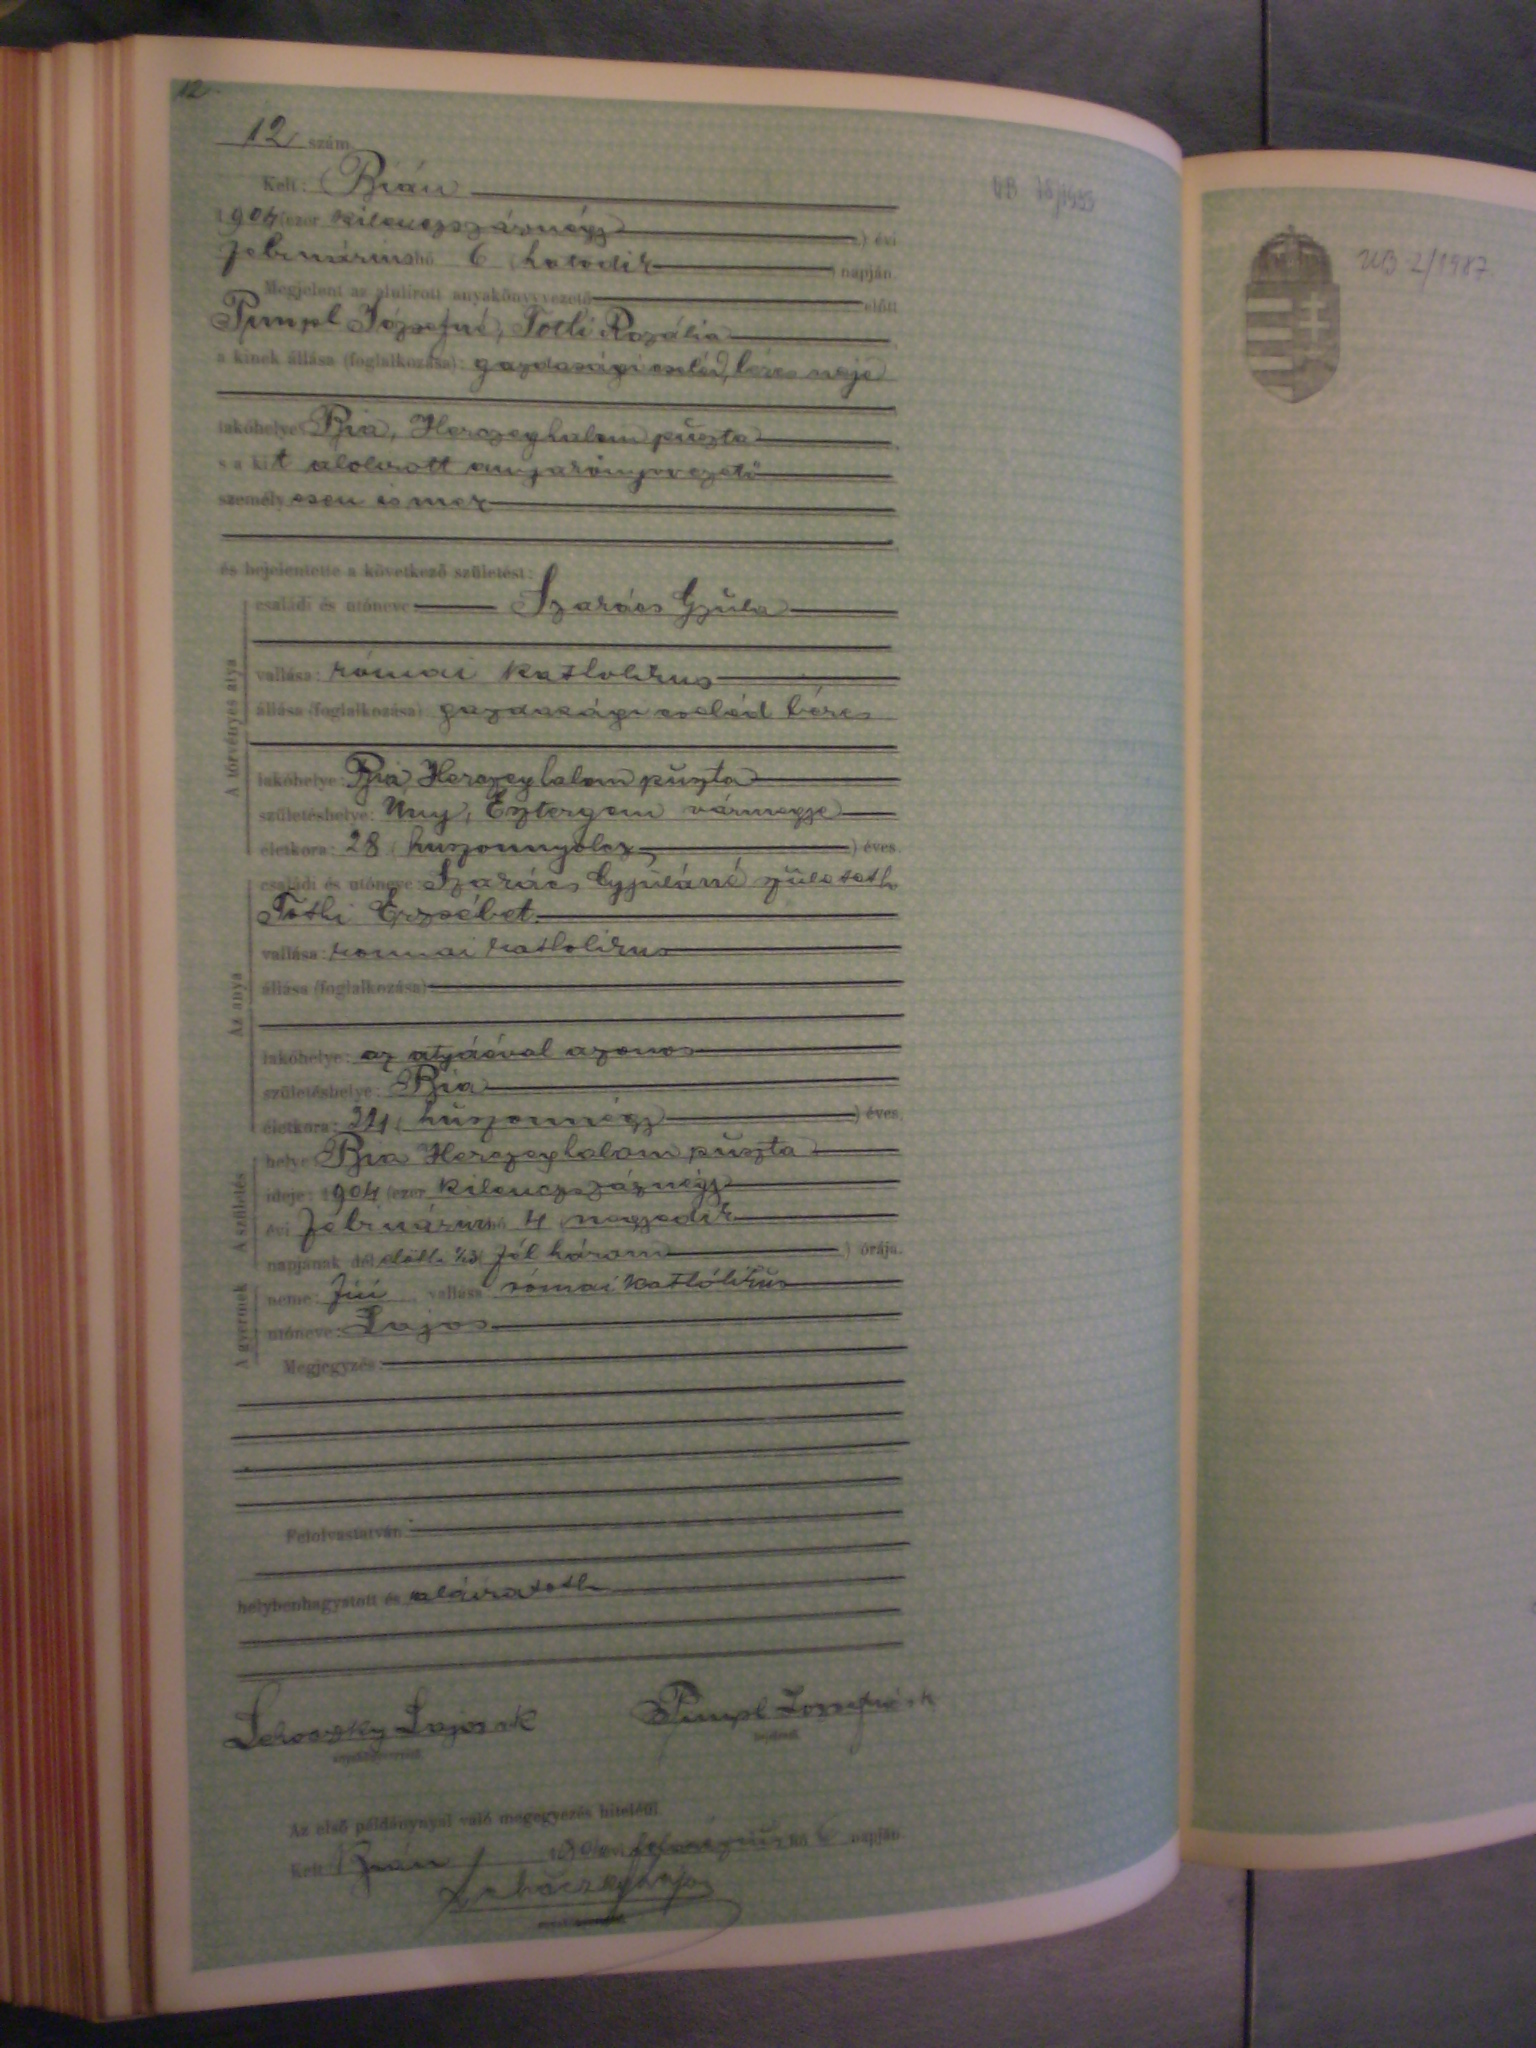 12
12 szám.
Kelt: Bián
1904 (ezer kilenczszáznégy) évi
februárius hó 6 (hatodik) napján.
Megjelent az alulirott anyakönyvvezető előtt
Pimpl Józsefné, Tóth Rozália
a kinek állása (foglalkozása): gazdasági cseléd, béres neje
lakóhelye: Bia, Herczeghalom puszta
s a kit alolirott anyakönyvvezető
személyesen ismer
és bejelentette a következő születést:
A törvényes atya
családi és utóneve Szarács Gyula
vallása: római katholikus
állása (foglalkozása) gazdasági cseléd béres
lakóhelye: Bia, Herczeghalom puszta
születéshelye: Uny, Esztergom vármegye
életkora: 28 (huszonnyolcz) éves.
Az anya
családi és utóneve: Szarács Gyuláné született
Tóth Erzsébet
vallása: romai katholikus
állása (foglalkozása)
lakóhelye: az atyáéval azonos
születéshelye: Bia
életkora: 24 (huszonnégy) éves.
A születés
helye: Bia Herczeghalom puszta
ideje: 1904 (ezer kilenczszáznégy
évi februárius hó 4 (negyedik
napjának dél előtt ½3 (fél három) órája.
A gyermek
neme: fiú vallása római kathólikus
utóneve: Lajos
Megjegyzés:
Felolvastatván
helybenhagyatott és aláiratott
Lajos sk Pimpl Józsefné sk
anyakönyvvezető bejelentő
Az első példánynyal való megegyezés hiteléül
Kelt Bián 1904 évi februárius hó 6 napján
Lajos
UB 2/1987